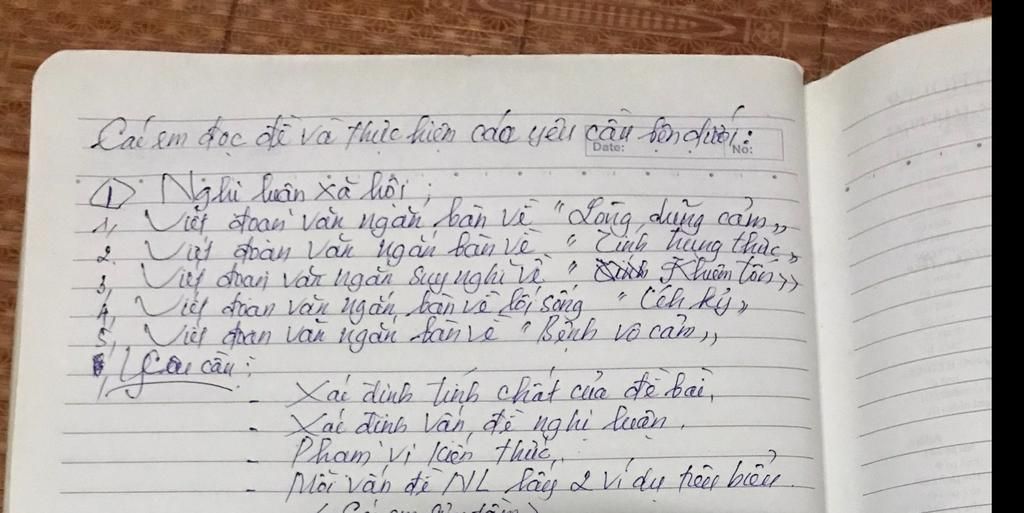 Các em đọc đề và thực hiện các yêu cầu bên dưới:
Date: No:
① Nghị luận xã hội:
1, Viết đoạn văn ngắn bàn về "Lòng dũng cảm"
2. Viết đoạn văn ngắn bàn về "Tính trung thực"
3, Viết đoạn văn ngắn suy nghĩ về " Khiêm tốn"
4, Viết đoạn văn ngắn bàn về lối sống "Ích kỷ"
5, Viết đoạn văn ngắn bàn về "Bệnh vô cảm"
Yêu cầu:
- Xác định tính chất của đề bài,
- Xác định vấn đề nghị luận.
- Phạm vi kiến thức,
- Mỗi vấn đề NL lấy 2 ví dụ tiêu biểu.